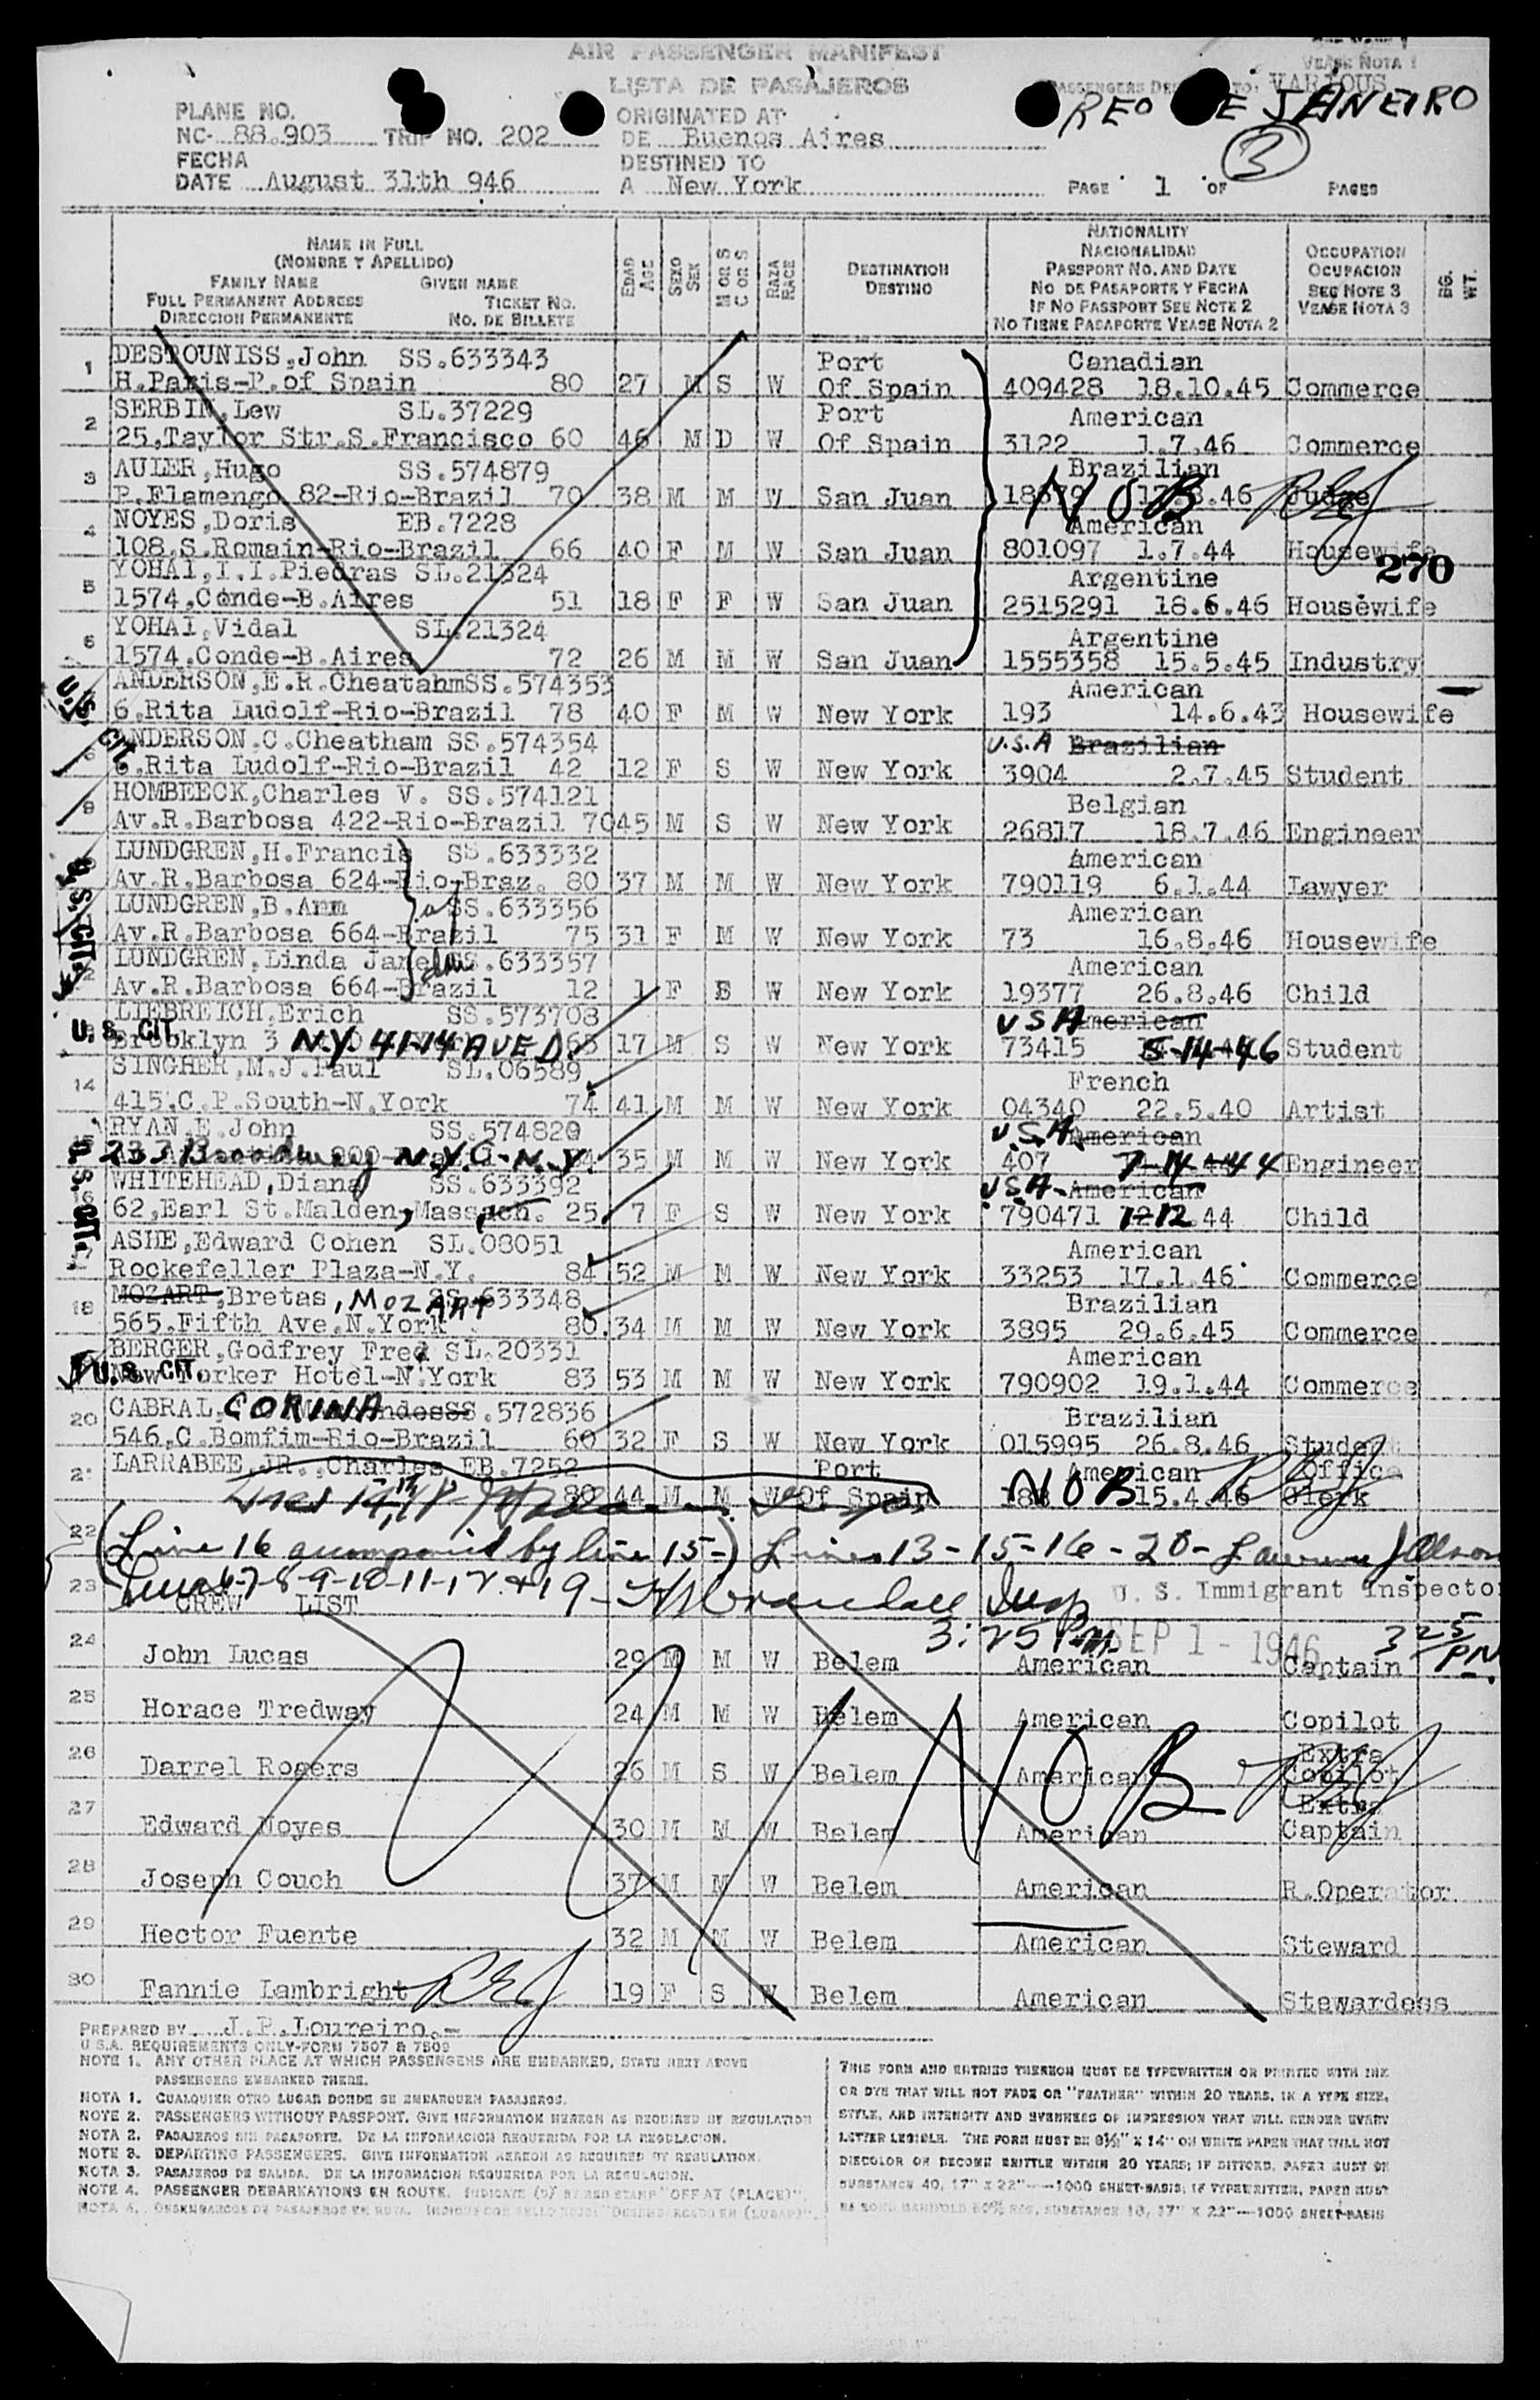 AIR PASSENGER MANIFEST
LISTA DE PASAJEROS
VEASE NOTA 1
VARIOUS
REO DE JANEIRO
3
PLANE NO.
NC- 88.903 TRIP NO. 202
ORIGINATED AT
DE Buenos Aires
FECHA
DATE August 31th 946
DESTINED TO
A New York
PAGE 1 OF PAGES
NAME IN FULL
(NOMBRE Y APELLIDO)
FAMILY NAME GIVEN NAME
FULL PERMANENT ADDRESS TICKET NO.
DIRECCION PERMANENTE NO. DE BILLETE
EDAD AGE
SEXO SEX
M OR S C OR S
RAZA RACE
DESTINATION
DESTINO
NATIONALITY
NACIONALIDAD
PASSPORT NO. AND DATE
NO DE PASAPORTE Y FECHA
IF NO PASSPORT SEE NOTE 2
NO TIENE PASAPORTE VEASE NOTA 2
OCCUPATION
OCUPACION
SEE NOTE 3
VEASE NOTA 3
BG. WT.
1 DESTOUNISS,John SS.633343 Port Canadian
H.Paris-P.of Spain 80 27 M S W Of Spain 409428 18.10.45 Commerce
2 SERBIN,Lew SL.37229 Port American
25,Taylor Str.S.Francisco 60 46 M D W Of Spain 3122 1.7.46 Commerce
3 AULER,Hugo SS.574879 Brazilian
P.Flamengo 82-Rio-Brazil 70 38 M M W San Juan NOB Judge
4 NOYES,Doris EB.7228 American
108.S.Romain-Rio-Brazil 66 40 F M W San Juan 801097 1.7.44 Housewife
270
5 YOHAI,I.I.Piedras SL.21324 Argentine
1574,Conde-B.Aires 51 18 F F W San Juan 2515291 18.6.46 Housewife
6 YOHAI,Vidal SL.21324 Argentine
1574.Conde-B.Aires 72 26 M M W San Juan 1555358 15.5.45 Industry
U.S. CIT.
ANDERSON,E.R.CheatahmSS.574353 American
6.Rita Ludolf-Rio-Brazil 78 40 F M W New York 193 14.6.43 Housewife
ANDERSON.C.Cheatham SS.574354 U.S.A Brazilian
6.Rita Ludolf-Rio-Brazil 42 12 F S W New York 3904 2.7.45 Student
9 HOMBEECK,Charles V. SS.574121 Belgian
Av.R.Barbosa 422-Rio-Brazil 70 45 M S W New York 26817 18.7.46 Engineer
LUNDGREN,H.Francis SS.633332 American
Av.R.Barbosa 624-Rio-Braz. 80 37 M M W New York 790119 6.1.44 Lawyer
U.S. CIT.
LUNDGREN,B.Ann SS.633356 American
Av.R.Barbosa 664-Brazil 75 31 F M W New York 73 16.8.46 Housewife
LUNDGREN,Linda Jane SS.633357 American
Av.R.Barbosa 664-Brazil 12 1 F S W New York 19377 26.8.46 Child
LIEBREICH,Erich SS.573708 USA American
U.S. CIT. Brooklyn 3 N.Y. 41-14 AVE D. 65 17 M S W New York 73415 5-14-46 Student
14 SINGHER,M.J.Paul SL.06589 French
415.C.P.South-N.York 74 41 M M W New York 04340 22.5.40 Artist
RYAN.E.John SS.574820 U.S.A. American
233 Broadway N.Y.C-N.Y. 35 M M W New York 407 7-14-44 Engineer
U.S. CIT.
WHITEHEAD,Diana SS.633392 USA- American
62,Earl St.Malden,Massach. 25 7 F S W New York 790471 12.44 Child
ASHE,Edward Cohen SL.08051 American
Rockefeller Plaza-N.Y. 84 52 M M W New York 33253 17.1.46 Commerce
18 MOZART,Bretas, MOZART SS.633348 Brazilian
565.Fifth Ave.N.York 80. 34 M M W New York 3895 29.6.45 Commerce
BERGER,Godfrey Fred SL.20331 American
U.S. CIT. New Yorker Hotel-N.York 83 53 M M W New York 790902 19.1.44 Commerce
20 CABRAL, CORINA SS.572836 Brazilian
546,C.Bomfim-Rio-Brazil 60 32 F S W New York 015995 26.8.46 Student
21 LARRABEE,JR.,Charles EB.7252 Port American Office
80 44 M M W Of Spain NOB 15.4.46 Clerk
Lines 14, 17, 18
22 (Line 16 accompanied by line 15-) Lines 13-15-16-20-
23 Lines 6-7-8-9-10-11-12 & 19- Insp
U. S. Immigrant Inspector
CREW LIST
3:25 P.M. SEP 1 - 1946 3 25 PM.
24 John Lucas 29 M M W Belem American Captain
25 Horace Tredway 24 M M W Belem American Copilot
26 Darrel Rogers 26 M S W Belem American Extra Copilot
NOB
27 Edward Noyes 30 M M W Belem American Extra Captain
28 Joseph Couch 37 M M W Belem American R.Operator
29 Hector Fuente 32 M M W Belem American Steward
30 Fannie Lambright 19 F S W Belem American Stewardess
PREPARED BY J.P.Loureiro.-
U.S.A. REQUIREMENTS ONLY-FORM 7507 & 7509
NOTE 1. ANY OTHER PLACE AT WHICH PASSENGERS ARE EMBARKED, STATE NEXT ABOVE
PASSENGERS EMBARKED THERE.
NOTA 1. CUALQUIER OTRO LUGAR DONDE SE EMBARQUEN PASAJEROS.
NOTE 2. PASSENGERS WITHOUT PASSPORT. GIVE INFORMATION HEREON AS REQUIRED BY REGULATION
NOTA 2. PASAJEROS SIN PASAPORTE. DE LA INFORMACION REQUERIDA POR LA REGULACION.
NOTE 3. DEPARTING PASSENGERS. GIVE INFORMATION HEREON AS REQUIRED BY REGULATION.
NOTA 3. PASAJEROS DE SALIDA. DE LA INFORMACION REQUERIDA POR LA REGULACION.
NOTE 4. PASSENGER DEBARKATIONS EN ROUTE. INDICATE (D) BY RED STAMP "OFF AT (PLACE)".
THIS FORM AND ENTRIES THEREON MUST BE TYPEWRITTEN OR PRINTED WITH INK
OR DYE THAT WILL NOT FADE OR "FEATHER" WITHIN 20 YEARS, IN A TYPE SIZE,
STYLE, AND INTENSITY AND EVENNESS OF IMPRESSION THAT WILL RENDER EVERY
LETTER LEGIBLE. THE FORM MUST BE 8½" X 14" ON WHITE PAPER THAT WILL NOT
DISCOLOR OR BECOME BRITTLE WITHIN 20 YEARS; IF DITTOED, PAPER MUST BE
SUBSTANCE 40, 17" X 22"----1000 SHEET-BASIS; IF TYPEWRITTEN, PAPER MUST